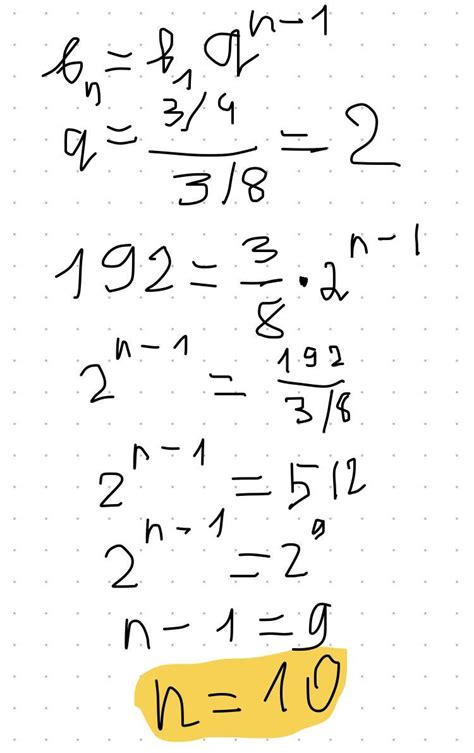 bₙ = b₁ qⁿ⁻¹
q = (3/4)/(3/8) = 2
192 = 3/8 · 2ⁿ⁻¹
2ⁿ⁻¹ = 192/(3/8)
2ⁿ⁻¹ = 512
2ⁿ⁻¹ = 2⁹
n - 1 = 9
n = 10